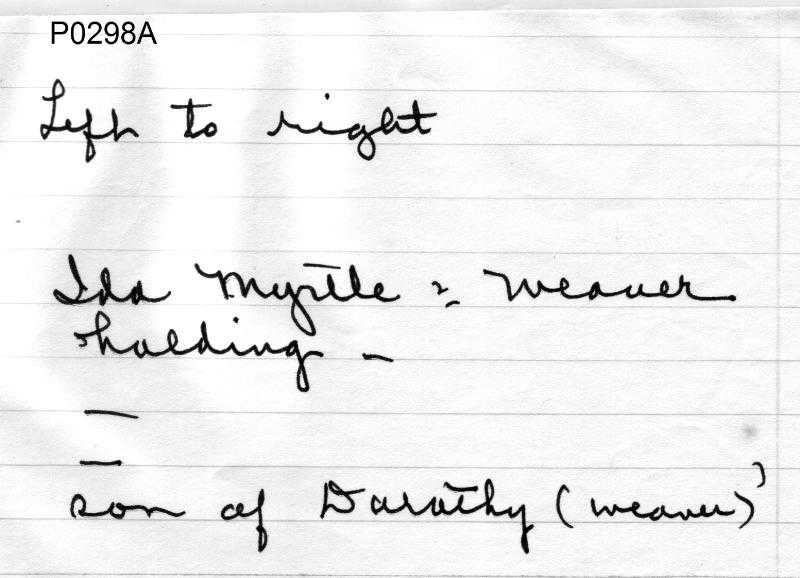 P0298A
Left to right
Ida Myrtle = Weaver.
holding -
—
—
son of Dorothy (Weaver)